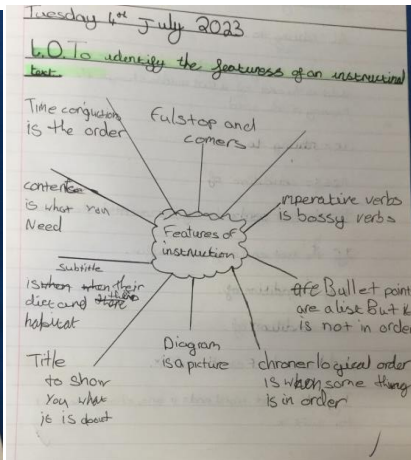 Tuesday 4th July 2023
L.O. To identify the featuress of an instructinal
text.
Time conjuctions
is the order
Fulstop and
comers
contents
is what you
Need
imperative verbs
is bossy verbs
Features of
instruction
Subtitle
is when their
diet and
habitat
are Bullet point
are a list But it
is not in order
Title
to show
You what
it is about
Diagram
is a picture
chronerlogical order
is when some thing
is in order